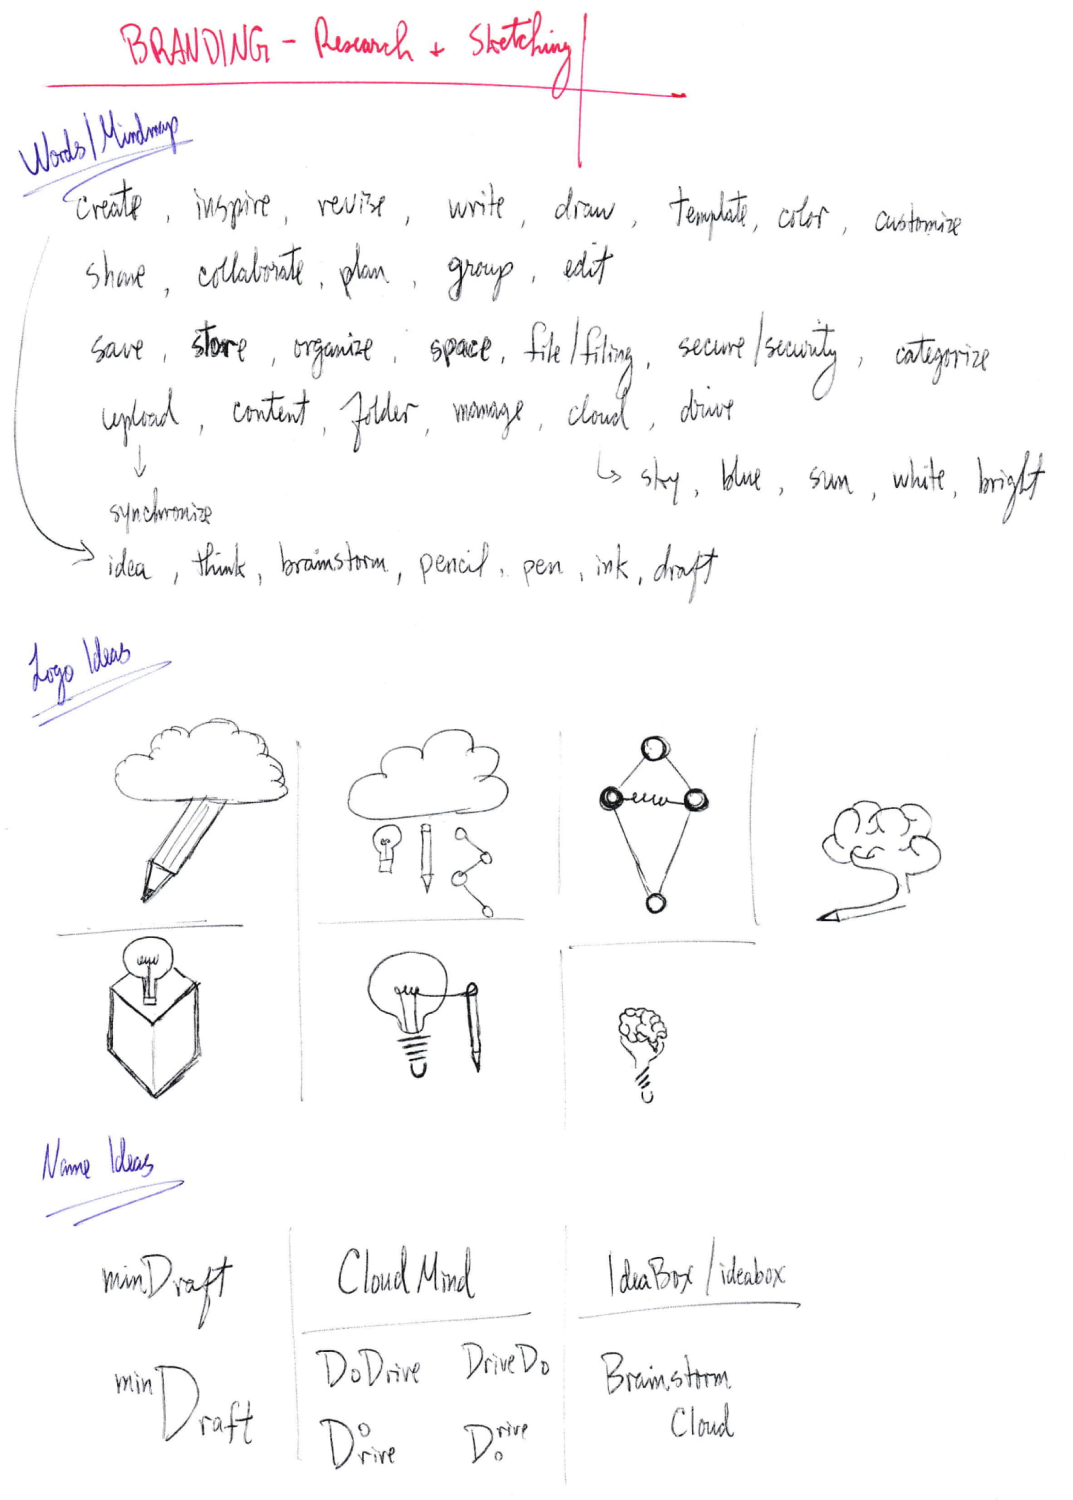 BRANDING - Research + Sketching
Words/Mindmap
create, inspire, revise, write, draw, template, color, customize
share, collaborate, plan, group, edit
save, store, organize, space, file/filing, secure/security, categorize
upload, content, folder, manage, cloud, drive
sky, blue, sun, white, bright
synchronize
idea, think, brainstorm, pencil, pen, ink, draft
Logo Ideas
Name Ideas
minDraft
Cloud Mind
IdeaBox/ideabox
min Draft
DoDrive
DriveDo
Brainstorm
Cloud
Do Drive
Drive Do